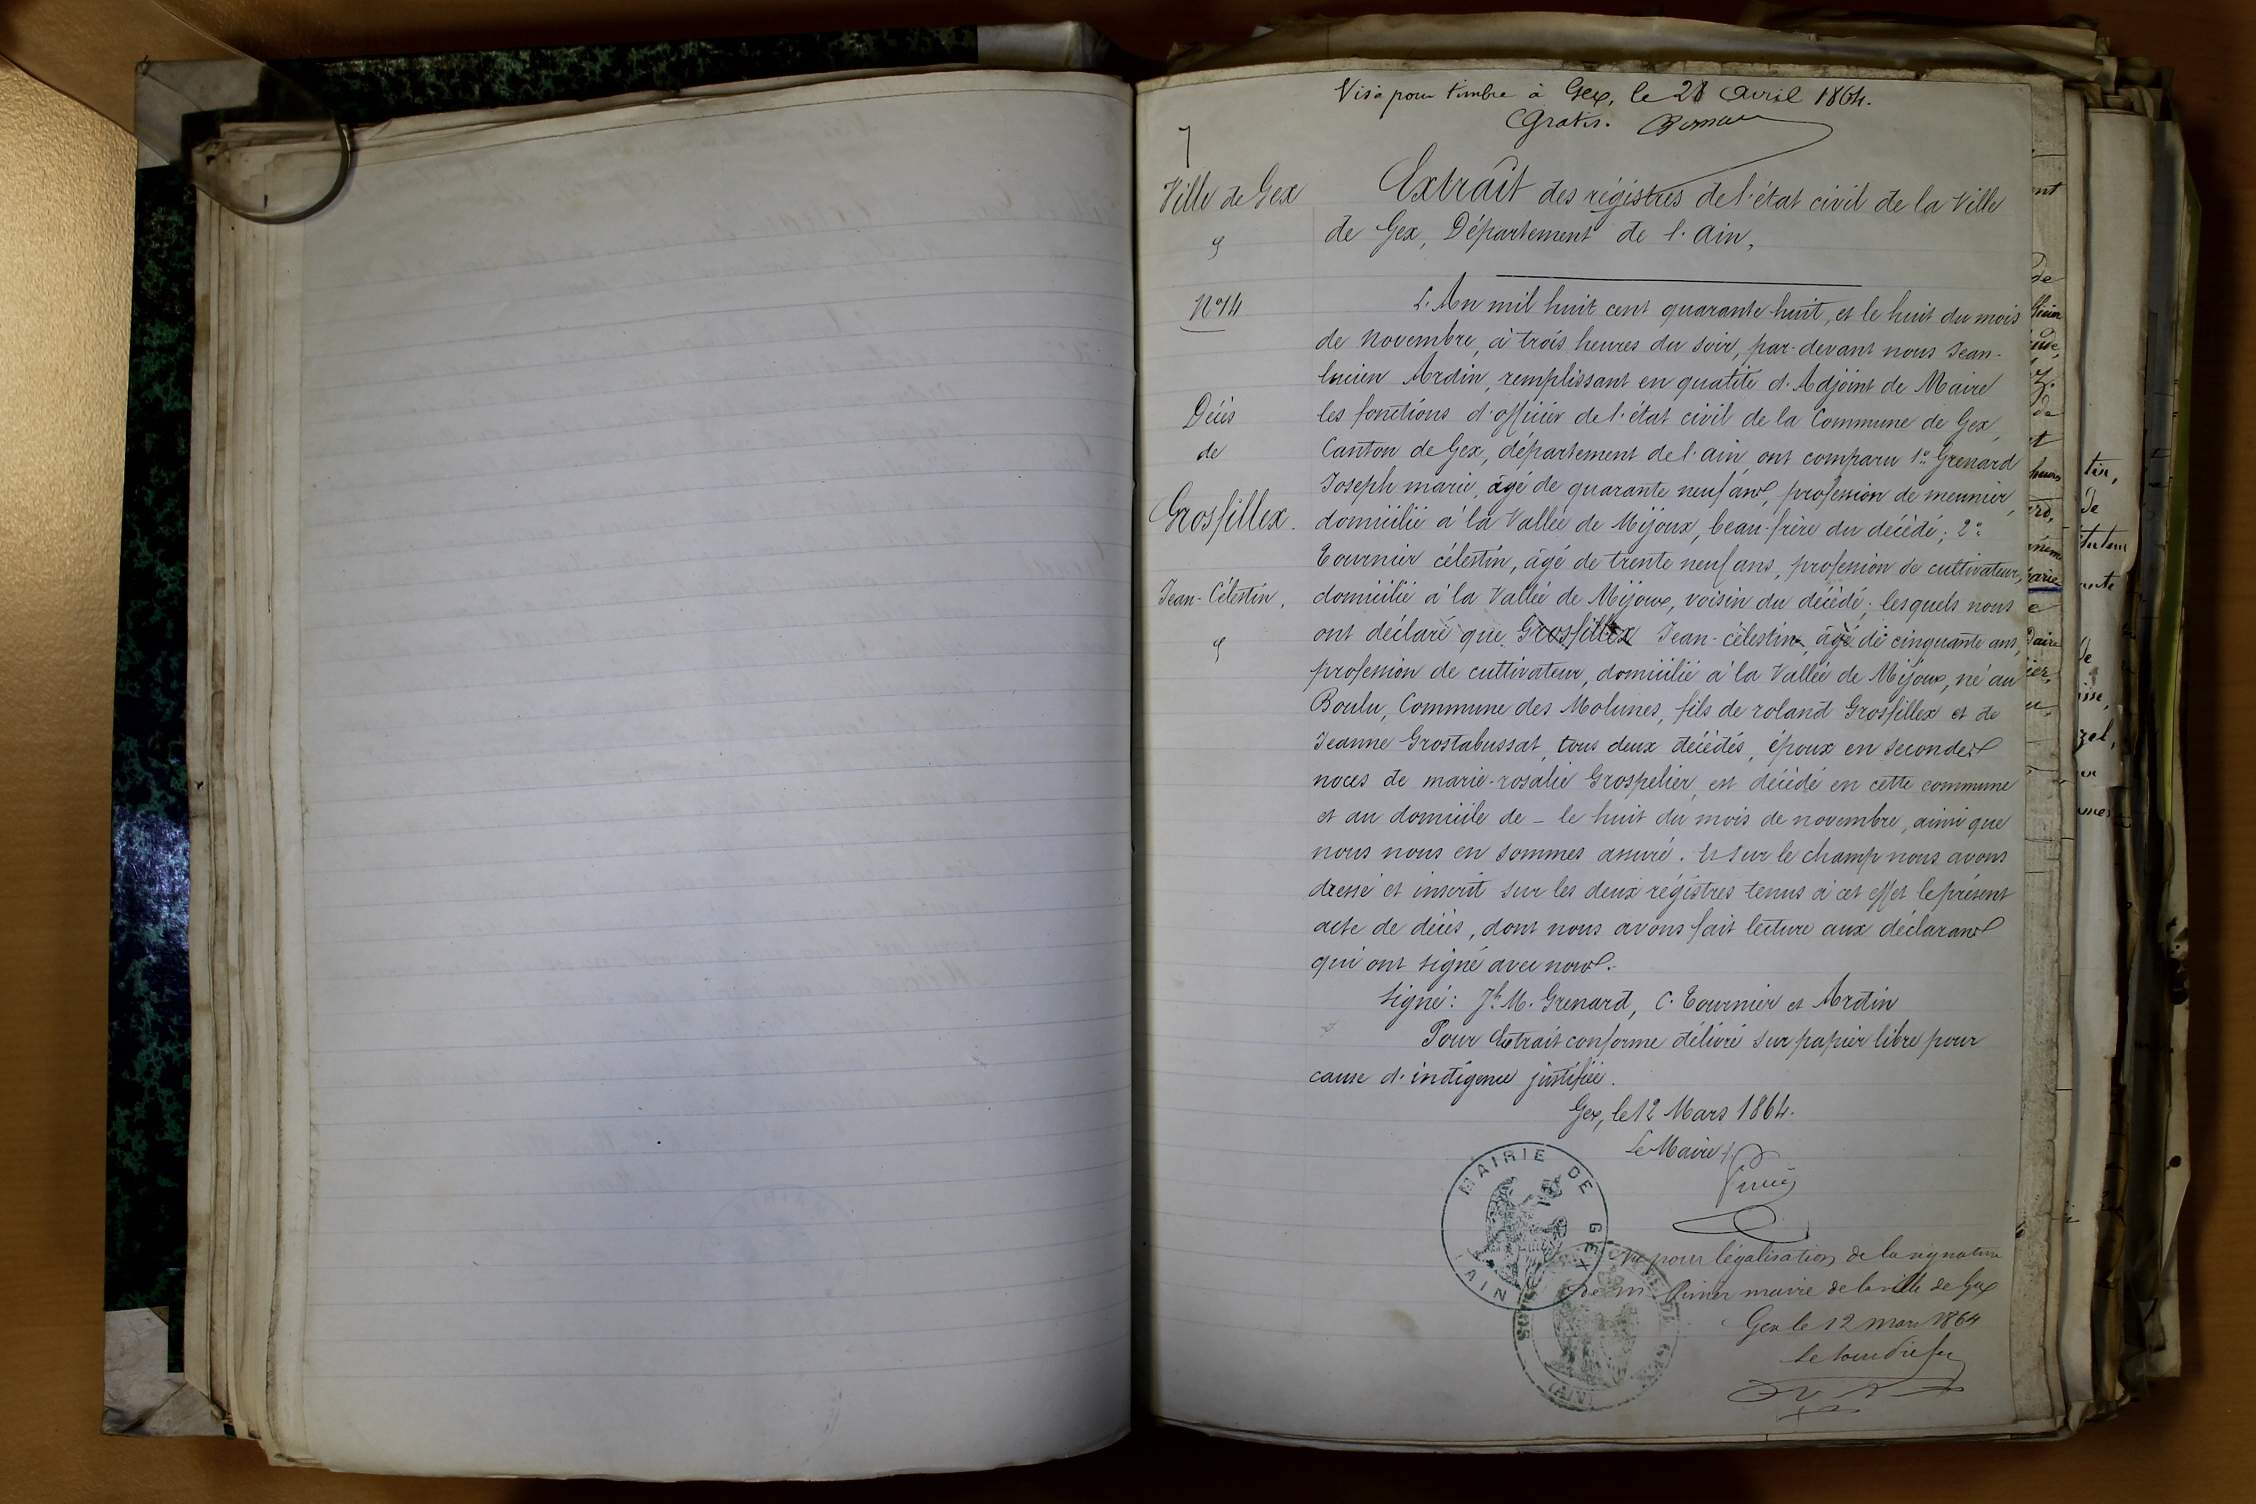 Visé pour timbre à Gex, le 28 avril 1864.
Gratis.
7
Ville de Gex
Extrait des régistres de l'état civil de la Ville
de Gex, Département de l'Ain,
N° 14
L'An mil huit cent quarante-huit, et le huit du mois
de Novembre, à trois heures du soir, par-devant nous Jean-
lucien Ardin, remplissant en qualité d'Adjoint de Maire
Décès
les fonctions d'officier de l'état civil de la Commune de Gex,
de
Canton de Gex, département de l'ain, ont comparu 1° Grenard
Joseph marie, âgé de quarante neuf ans, profession de meunier,
Grosfillex.
domicilié à la Vallée de Mijoux, beau-frère du décédé; 2°
Tournier célestin, âgé de trente neuf ans, profession de cultivateur,
Jean-Célestin.
domicilié à la Vallée de Mijoux, voisin du décédé; lesquels nous
ont déclaré que Grosfillex Jean-célestin, âgé de cinquante ans,
profession de cultivateur, domicilié à la Vallée de Mijoux, né au
Boulu, Commune des Molunes, fils de roland Grosfillex et de
Jeanne Grostabussat, tous deux décédés, époux en secondes
noces de marie-rosalie Grospelier, est décédé en cette commune
et au domicile de - le huit du mois de novembre, ainsi que
nous nous en sommes assuré. Et sur le champ nous avons
dressé et inscrit sur les deux régistres tenus à cet effet le présent
acte de décès, dont nous avons fait lecture aux déclarans
qui ont signé avec nous.
Signé: Jh M. Grenard, C. Tournier et Ardin
Pour Extrait conforme délivré sur papier libre pour
cause d'indigence justifiée.
Gex, le 12 Mars 1864.
Le Maire
MAIRIE DE GEX
(AIN)
Vu pour légalisation de la signature
de M. maire de la ville de Gex
Gex le 12 mars 1864
le sous Préfet
(AIN)